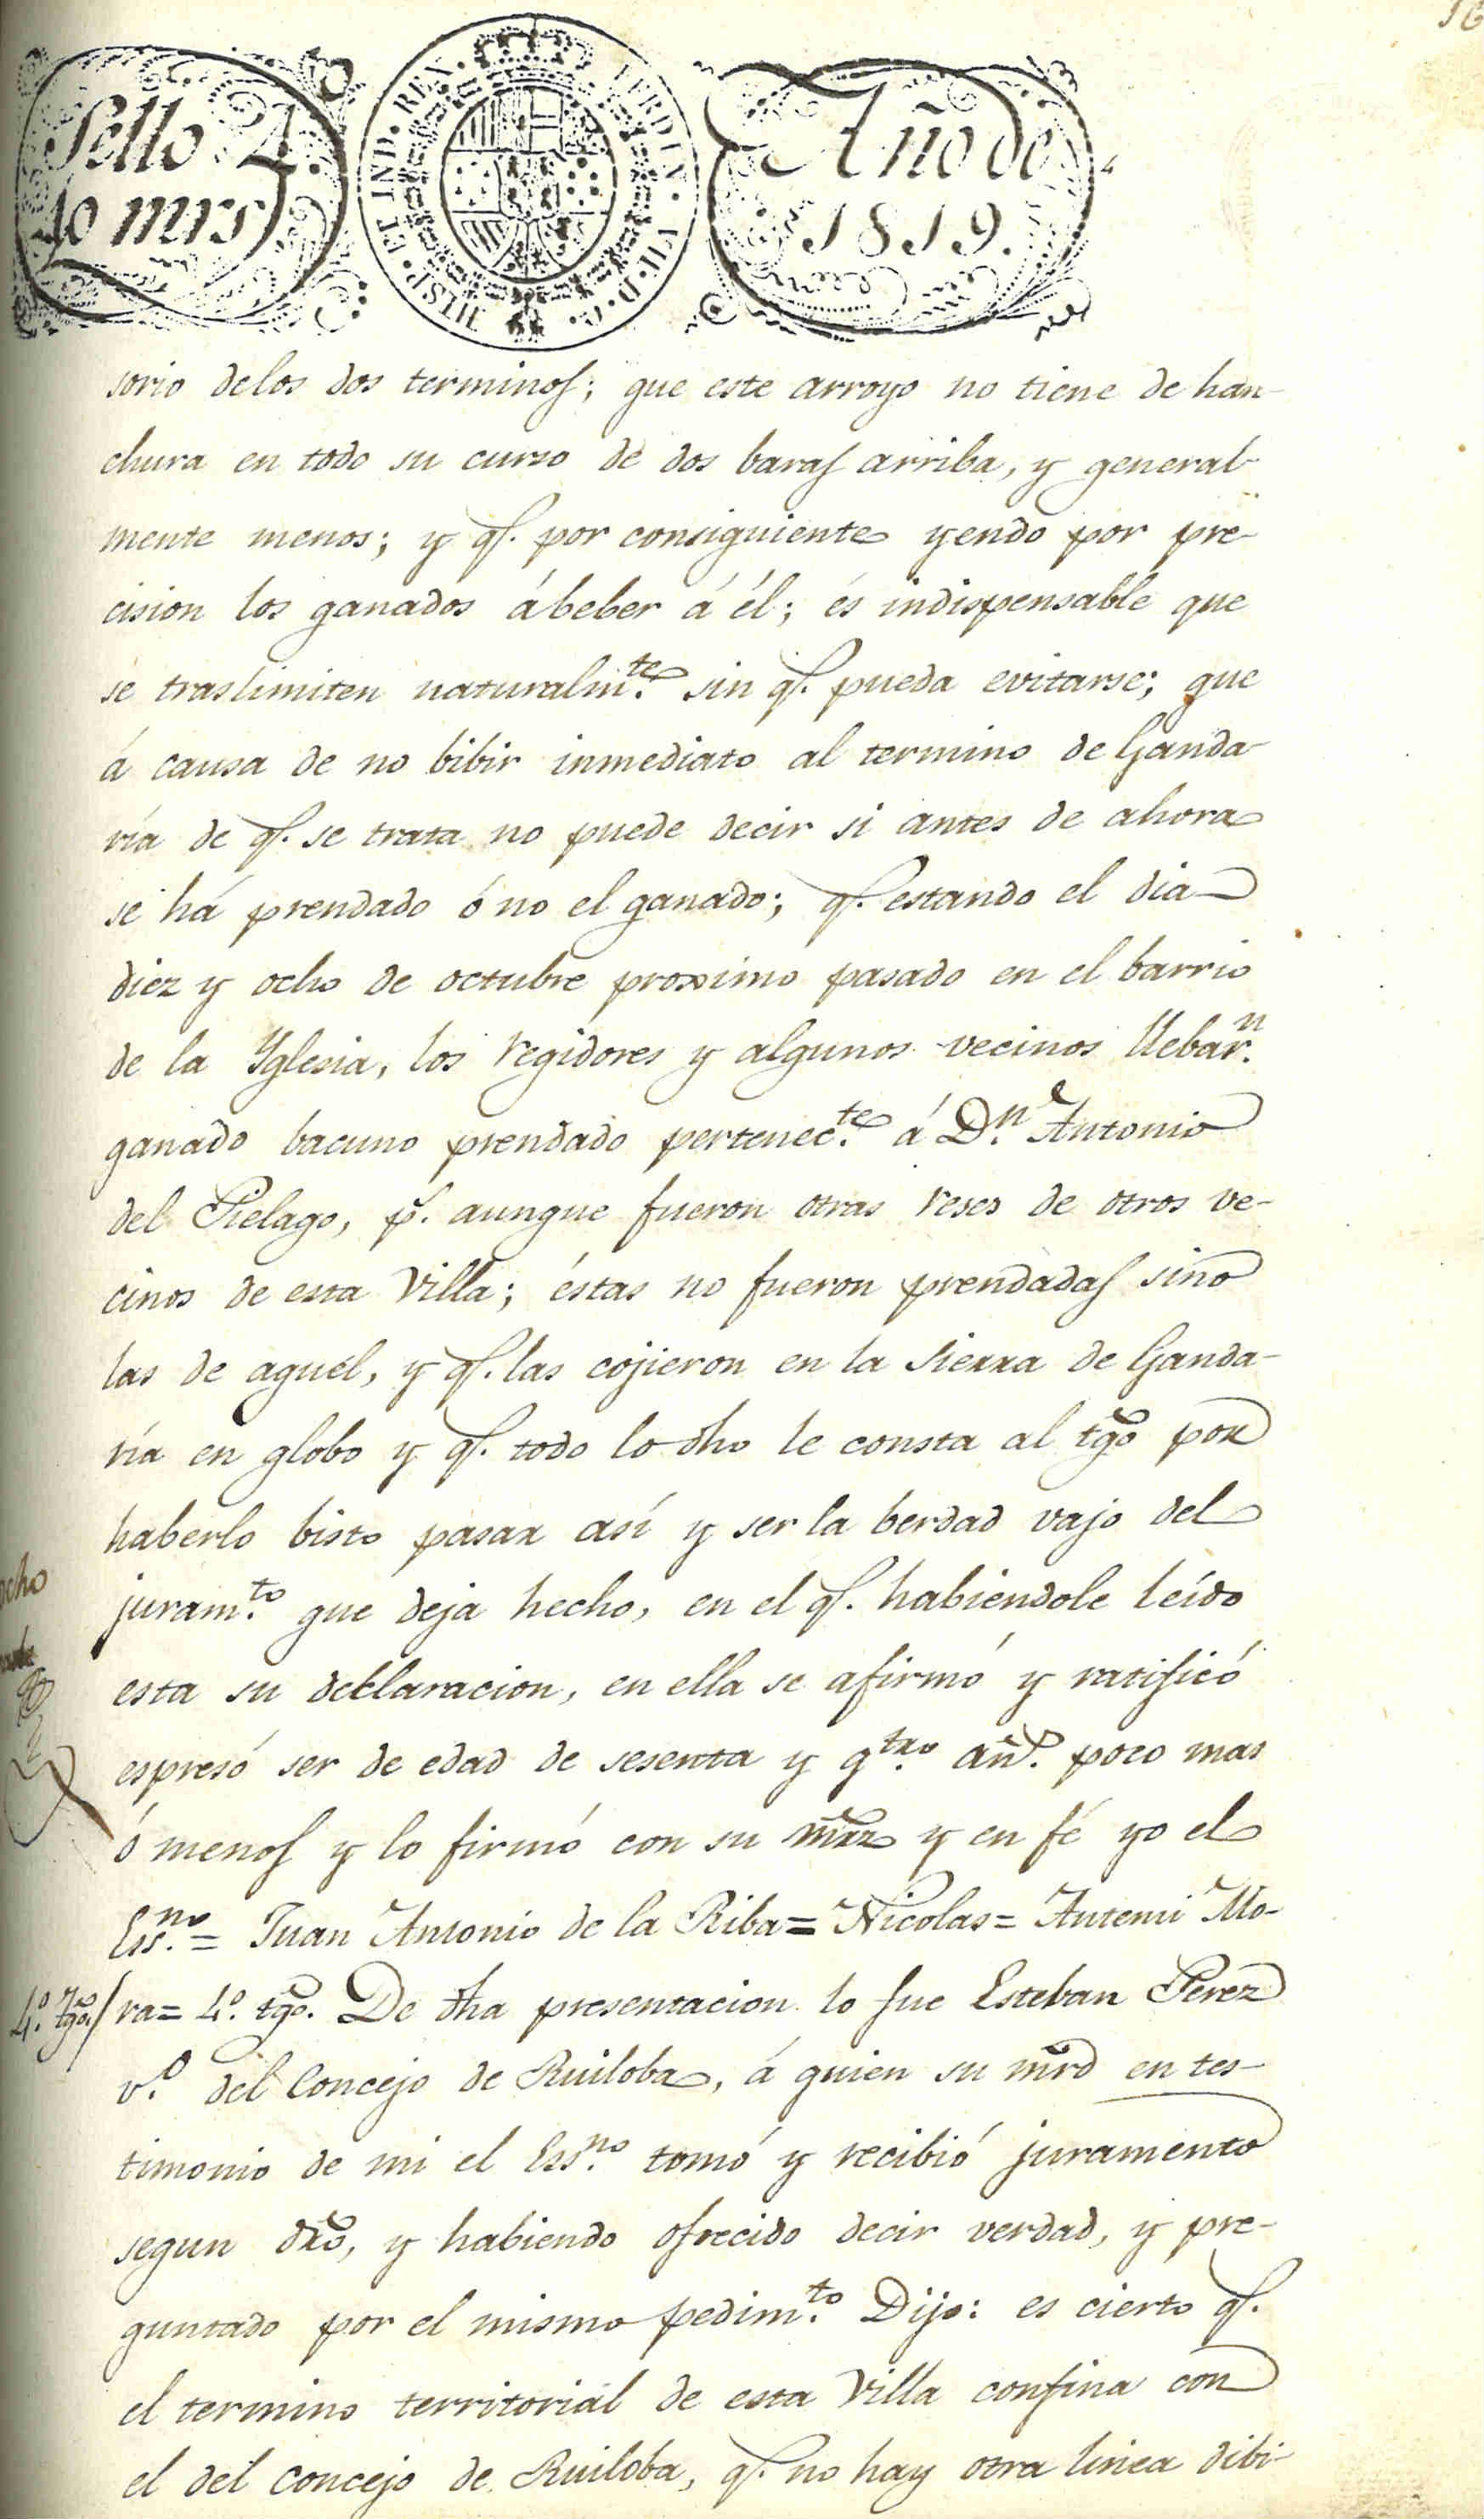 Sello 4.
40 mrs
HISP. ET IND. REX. FERDIN. VII. D. G.
Año de
1819.
sorio delos dos terminos; que este arroyo no tiene de han-
chura en todo su curso de dos baras arriba, y general-
mente menos; y q. por consiguiente yendo por pre-
cision los ganados á beber á él; és indispensable que
se traslimiten naturalm.te sin q. pueda evitarse; que
á causa de no bibir inmediato al termino de Ganda-
ría de q. se trata no puede decir si antes de ahora
se há prendado ó no el ganado; q. estando el dia
diez y ocho de octubre proximo pasado en el barrio
de la Yglesia, los regidores y algunos vecinos llebar.n
ganado bacuno prendado pertenec.te á D.n Antonio
del Pielago, p. aunque fueron otras reses de otros ve-
cinos de esta Villa; éstas no fueron prendadas sino
las de aquel, y q. las cojieron en la Sierra de Ganda-
ría en globo y q. todo lo dho le consta al tgo por
haberlo bisto pasar así y ser la berdad vajo del
juram.to que deja hecho, en el q. habiendole leído
esta su declaracion, en ella se afirmó y ratificó
espresó ser de edad de sesenta y q.tro añ.s poco mas
ó menos y lo firmó con su mrd y en fé yo el
Ess.no = Juan Antonio de la Riba = Nicolas = Antemi Mo-
4.º tgo. / ra = 4.º tgo. De dha presentacion lo fue Esteban Perez
v.º del Concejo de Ruiloba, á quien su mrd en tes-
timonio de mi el Ess.no tomó y recibió juramento
segun dro, y habiendo ofrecido decir verdad, y pre-
guntado por el mismo pedim.to Dijo: es cierto q.
el termino territorial de esta Villa confina con
el del Concejo de Ruiloba, q. no hay otra linea dibi-